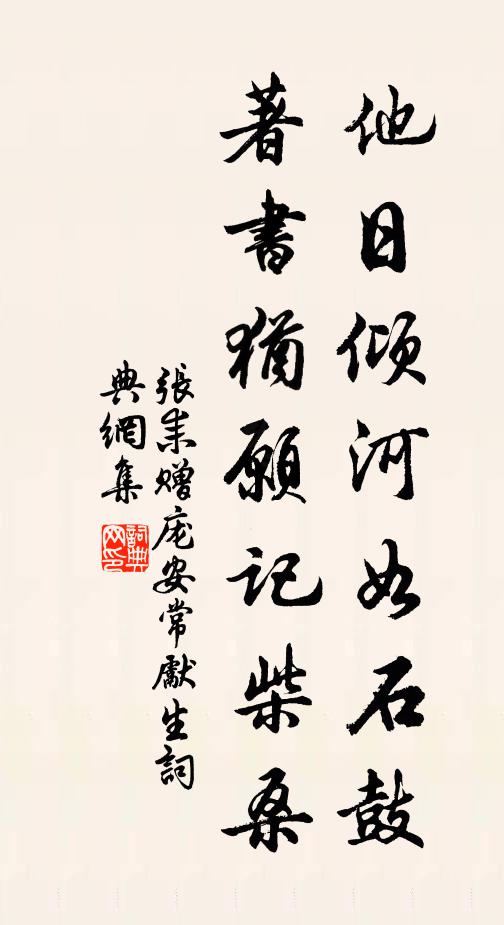 他日倾河如石鼓
著書猶願记柴桑
張耒赠庞安常獻生詞
典網集
詞典
网印